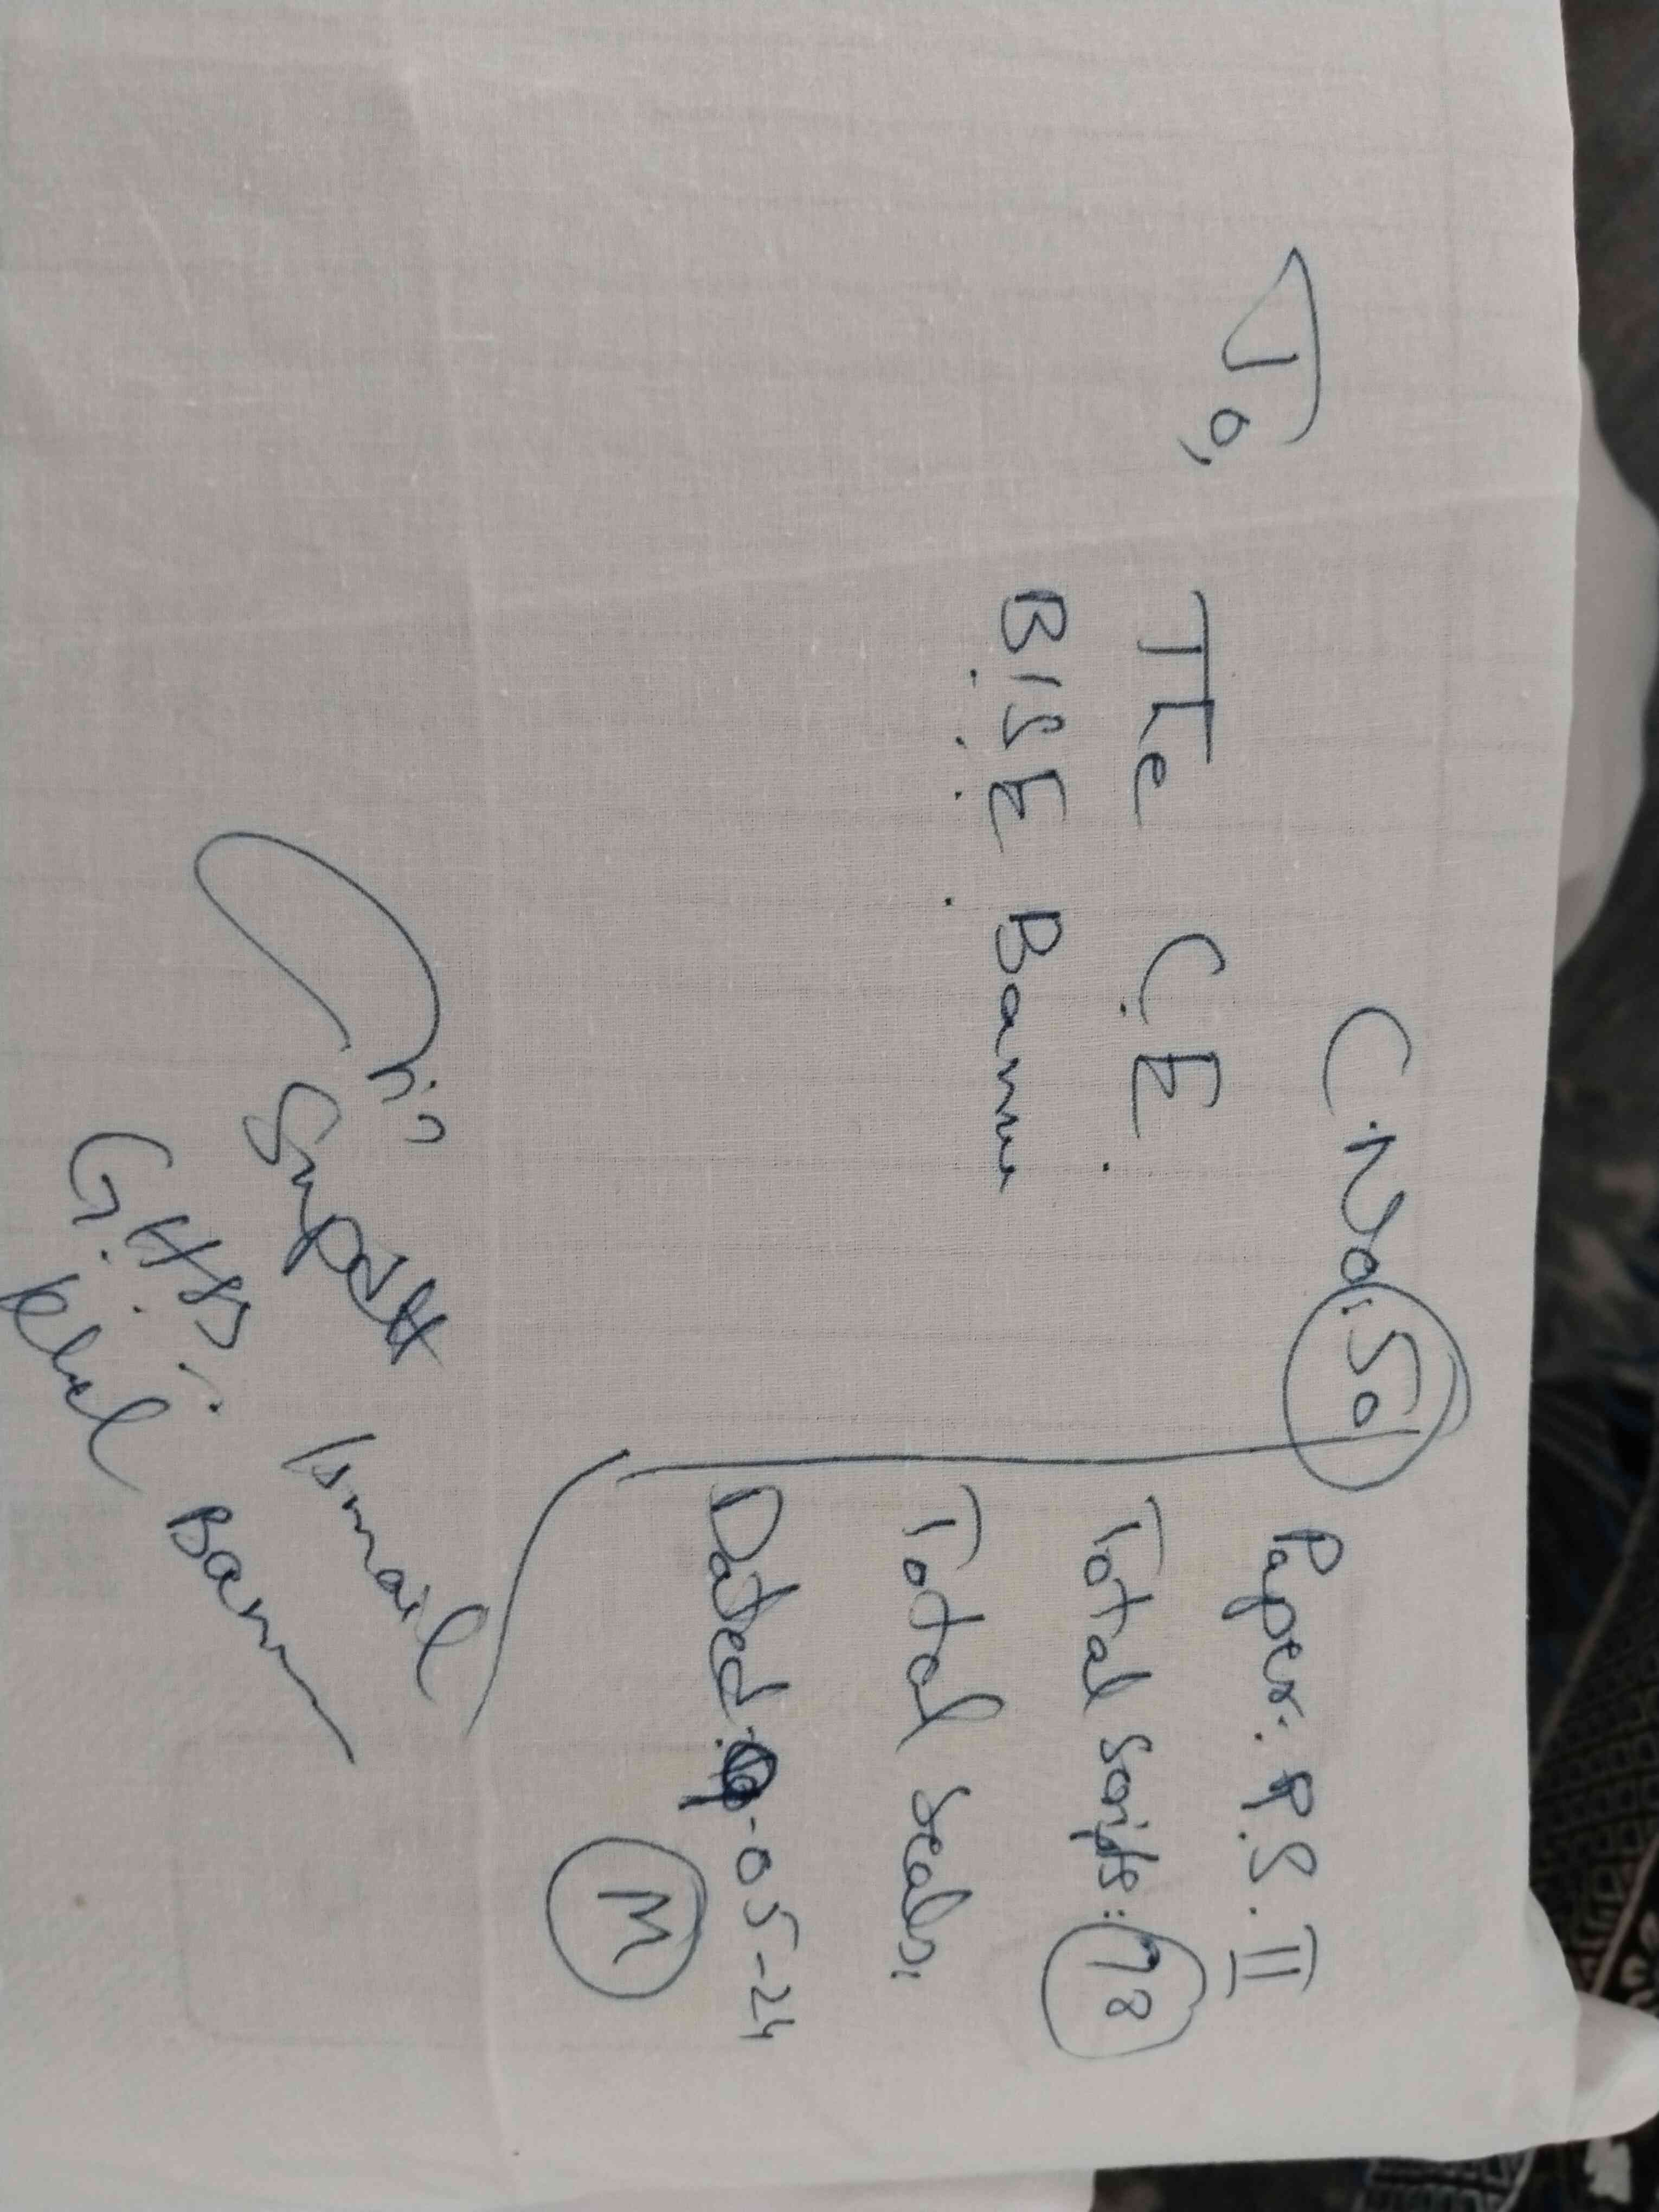 C.No: 50
To,
The C.E.
B.I.S.E. Bannu
Paper: P.S. II
Total Scripts: 98
Total Seals:
Dated: -05-24
M
Supdtt
G.H.S. Ismail
Khel Bannu